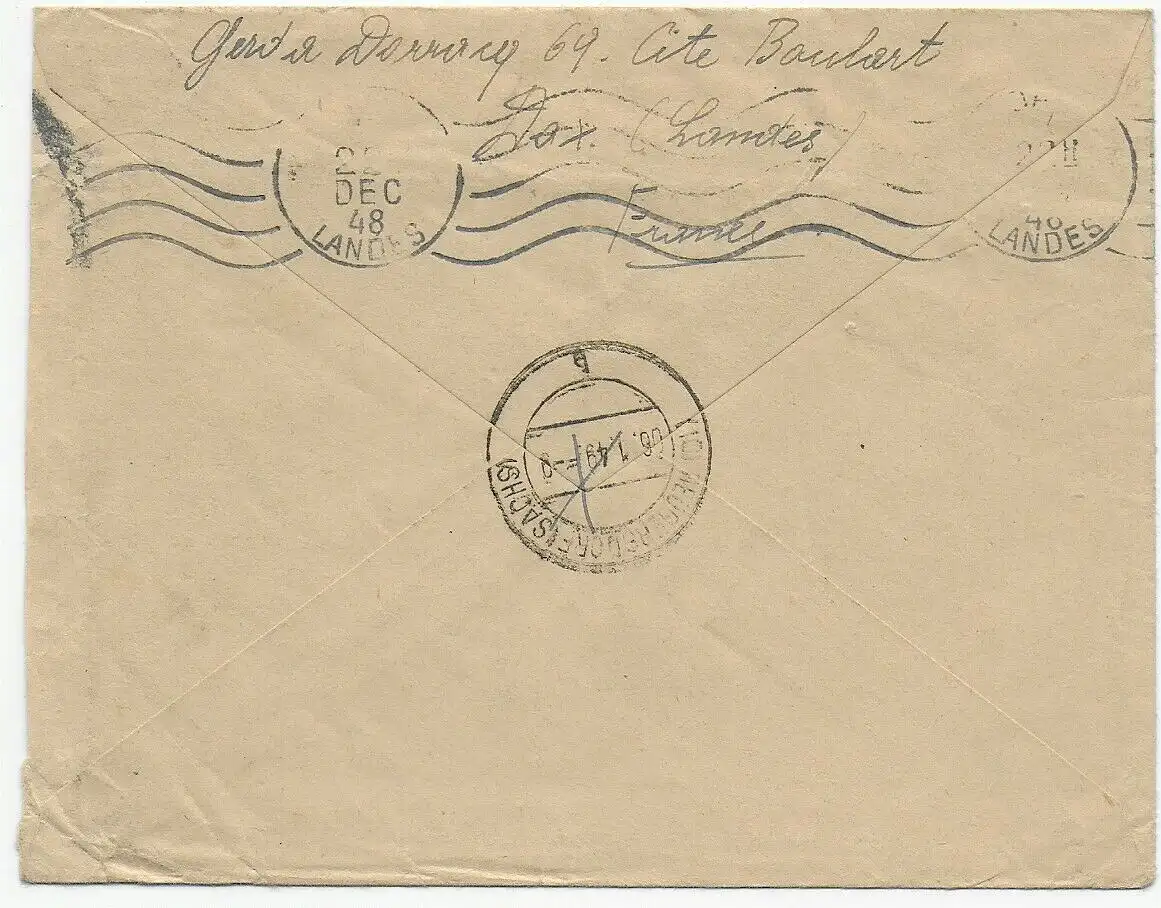 Gerda Darracq 69. Cite Boulart
Dax. (Landes)
France
22
DEC
48
LANDES
22 II
48
LANDES
b
06. 1. 49. -9
(10) (SACHS)